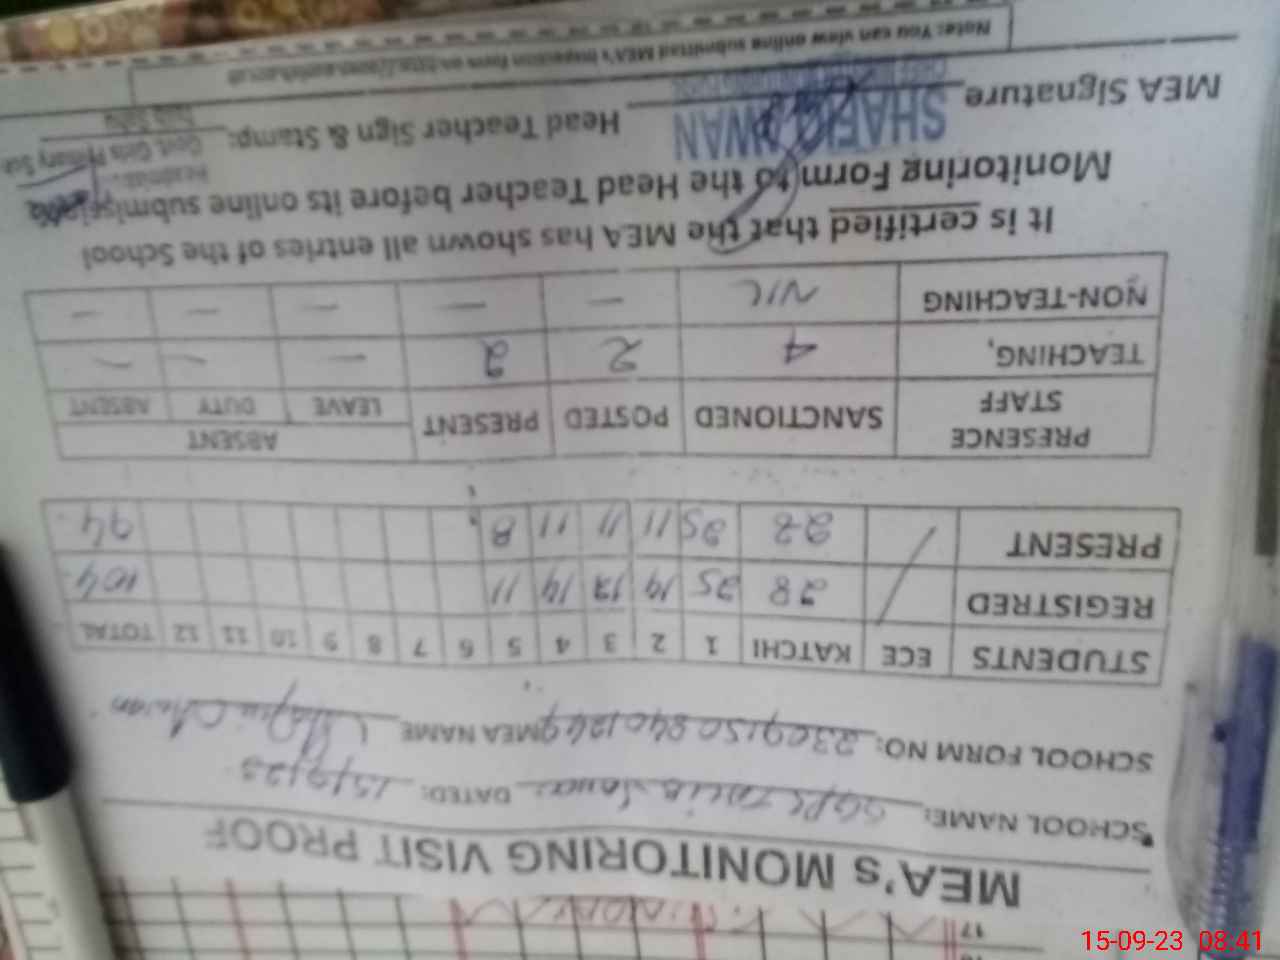 17
MEA's MONITORING VISIT PROOF
SCHOOL NAME: GGPS DATED: 15/9/23
SCHOOL FORM NO: MEA NAME
STUDENTS ECE KATCHI 1 2 3 4 5 6 7 8 9 10 11 12 TOTAL
REGISTRED 28 25 14 12 14 11 104
PRESENT 28 25 11 11 11 8 94
PRESENCE STAFF SANCTIONED POSTED PRESENT ABSENT
LEAVE DUTY ABSENT
TEACHING, 4 2 2 — — —
NON-TEACHING NIL — — — — —
It is certified that the MEA has shown all entries of the School
Monitoring Form to the Head Teacher before its online submission
MEA Signature Head Teacher Sign & Stamp:
SHAFIQ AWAN
Govt. Girls Primary Sch
Note: You can view online submitted MEA's inspection form on
15-09-23 08:41